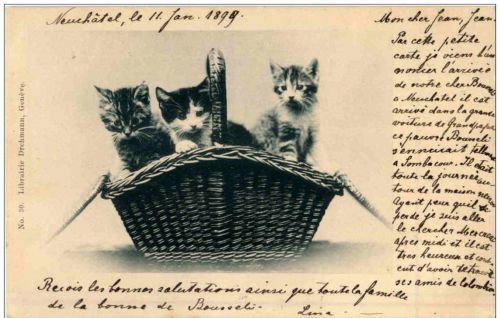 Neuchâtel, le 11 Jan. 1899
Mon cher Jean, Jean
Par cette petite
carte je viens t'an
noncer l'arrivée
de notre cher Bousseli
a Neuchâtel il est
arrivé dans la grande
voiture de Grandpapa
ce pauvre Bousseli
s'ennuiait
a Sombacour. Il était
toute la journée au
tour de la maison
Ayant peur qu'il se
perde je suis aller
le chercher Mercredi
apres midi et il est
tres heureux et
d'avoir retrouvé
ses amis de Colombier
No. 30. Librairie Drehmann, Genève.
Recois les bonnes salutations ainsi que toute la famille
de la bonne de Bousseli.
Lina.